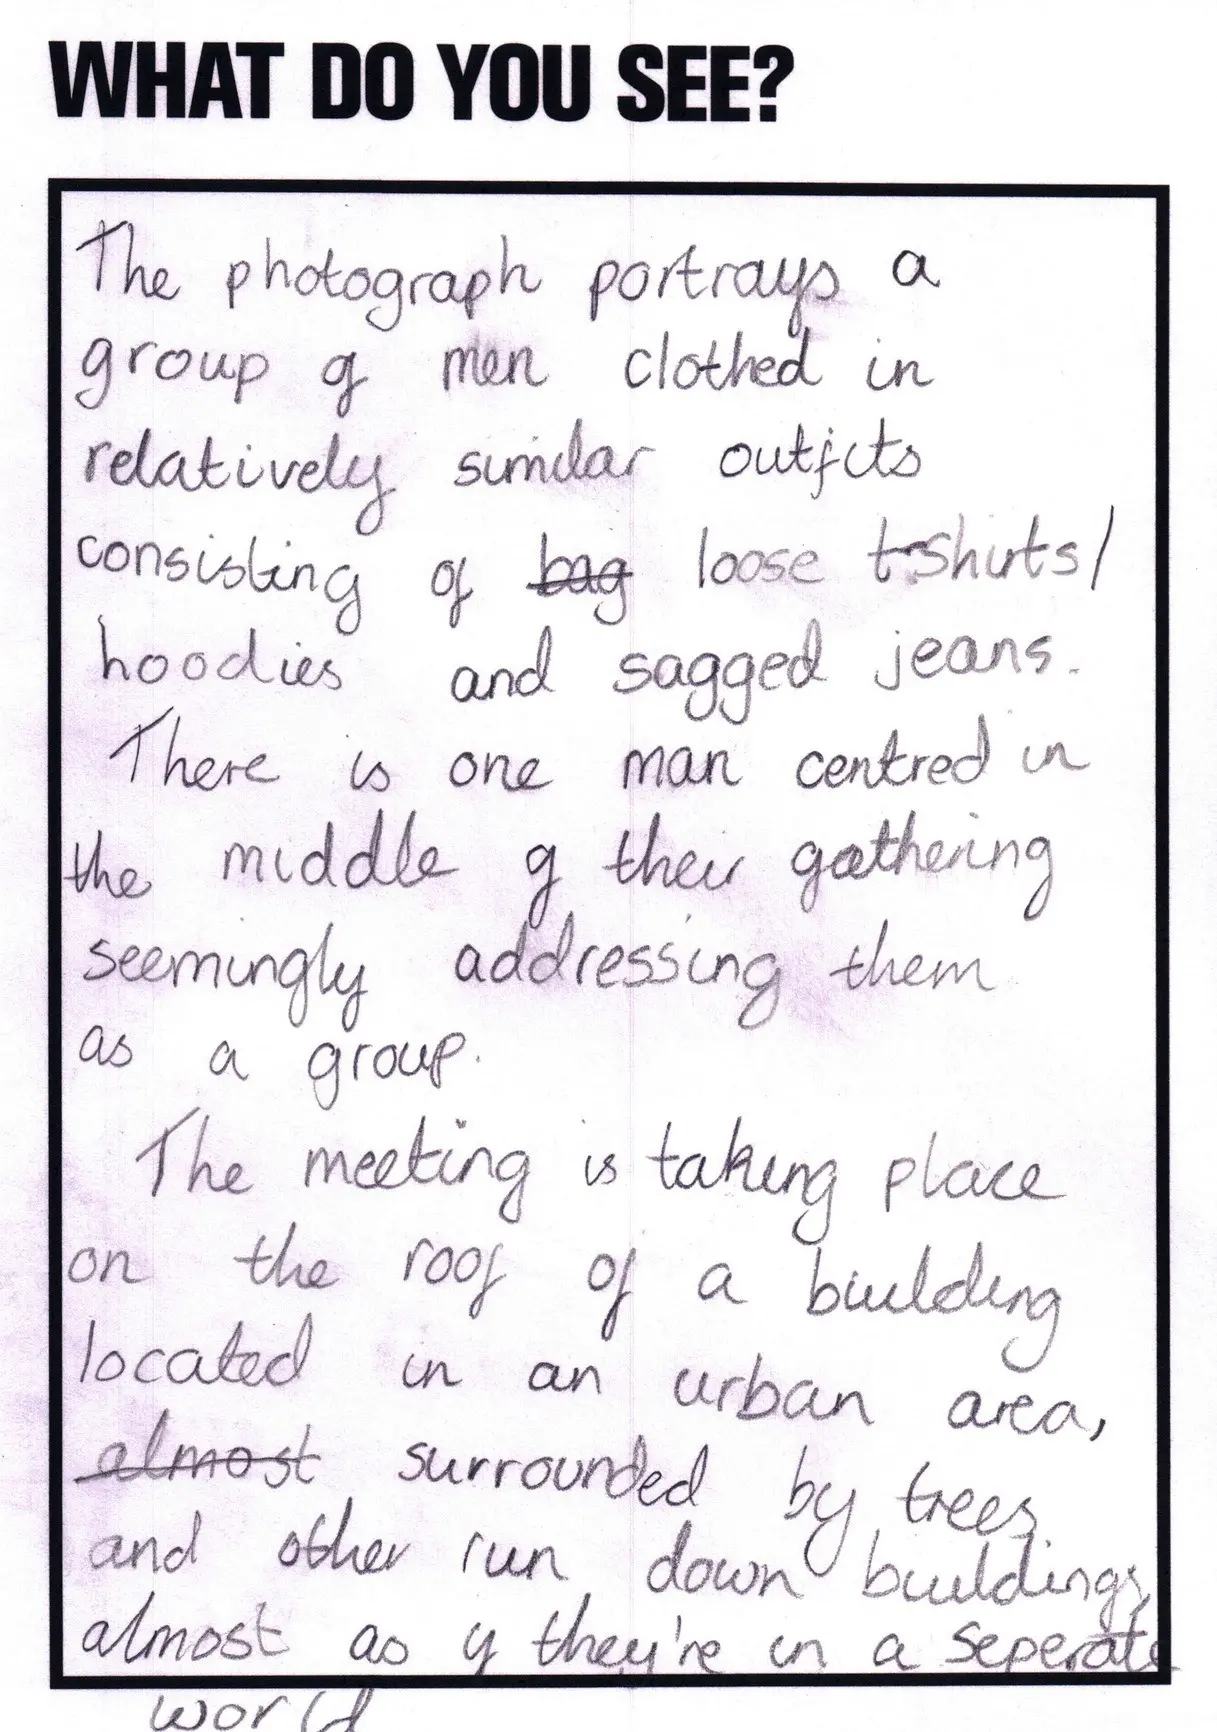 WHAT DO YOU SEE?
The photograph portrays a
group of men clothed in
relatively similar outfits
consisting of bag loose t-shirts/
hoodies and sagged jeans.
There is one man centred in
the middle of their gathering
seemingly addressing them
as a group.
The meeting is taking place
on the roof of a building
located in an urban area,
almost surrounded by trees
and other run down buildings,
almost as if they're in a seperate
world